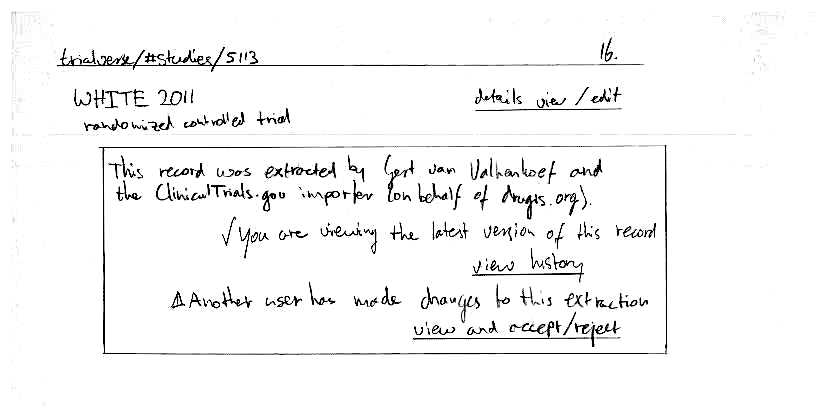 trialverse/#studies/5113
16.
WHITE 2011
details view / edit
randomized controlled trial
This record was extracted by Gert van Valkenhoef and
the ClinicalTrials.gov importer (on behalf of drugis.org).
√ You are viewing the latest version of this record
view history
⚠ Another user has made changes to this extraction
view and accept/reject